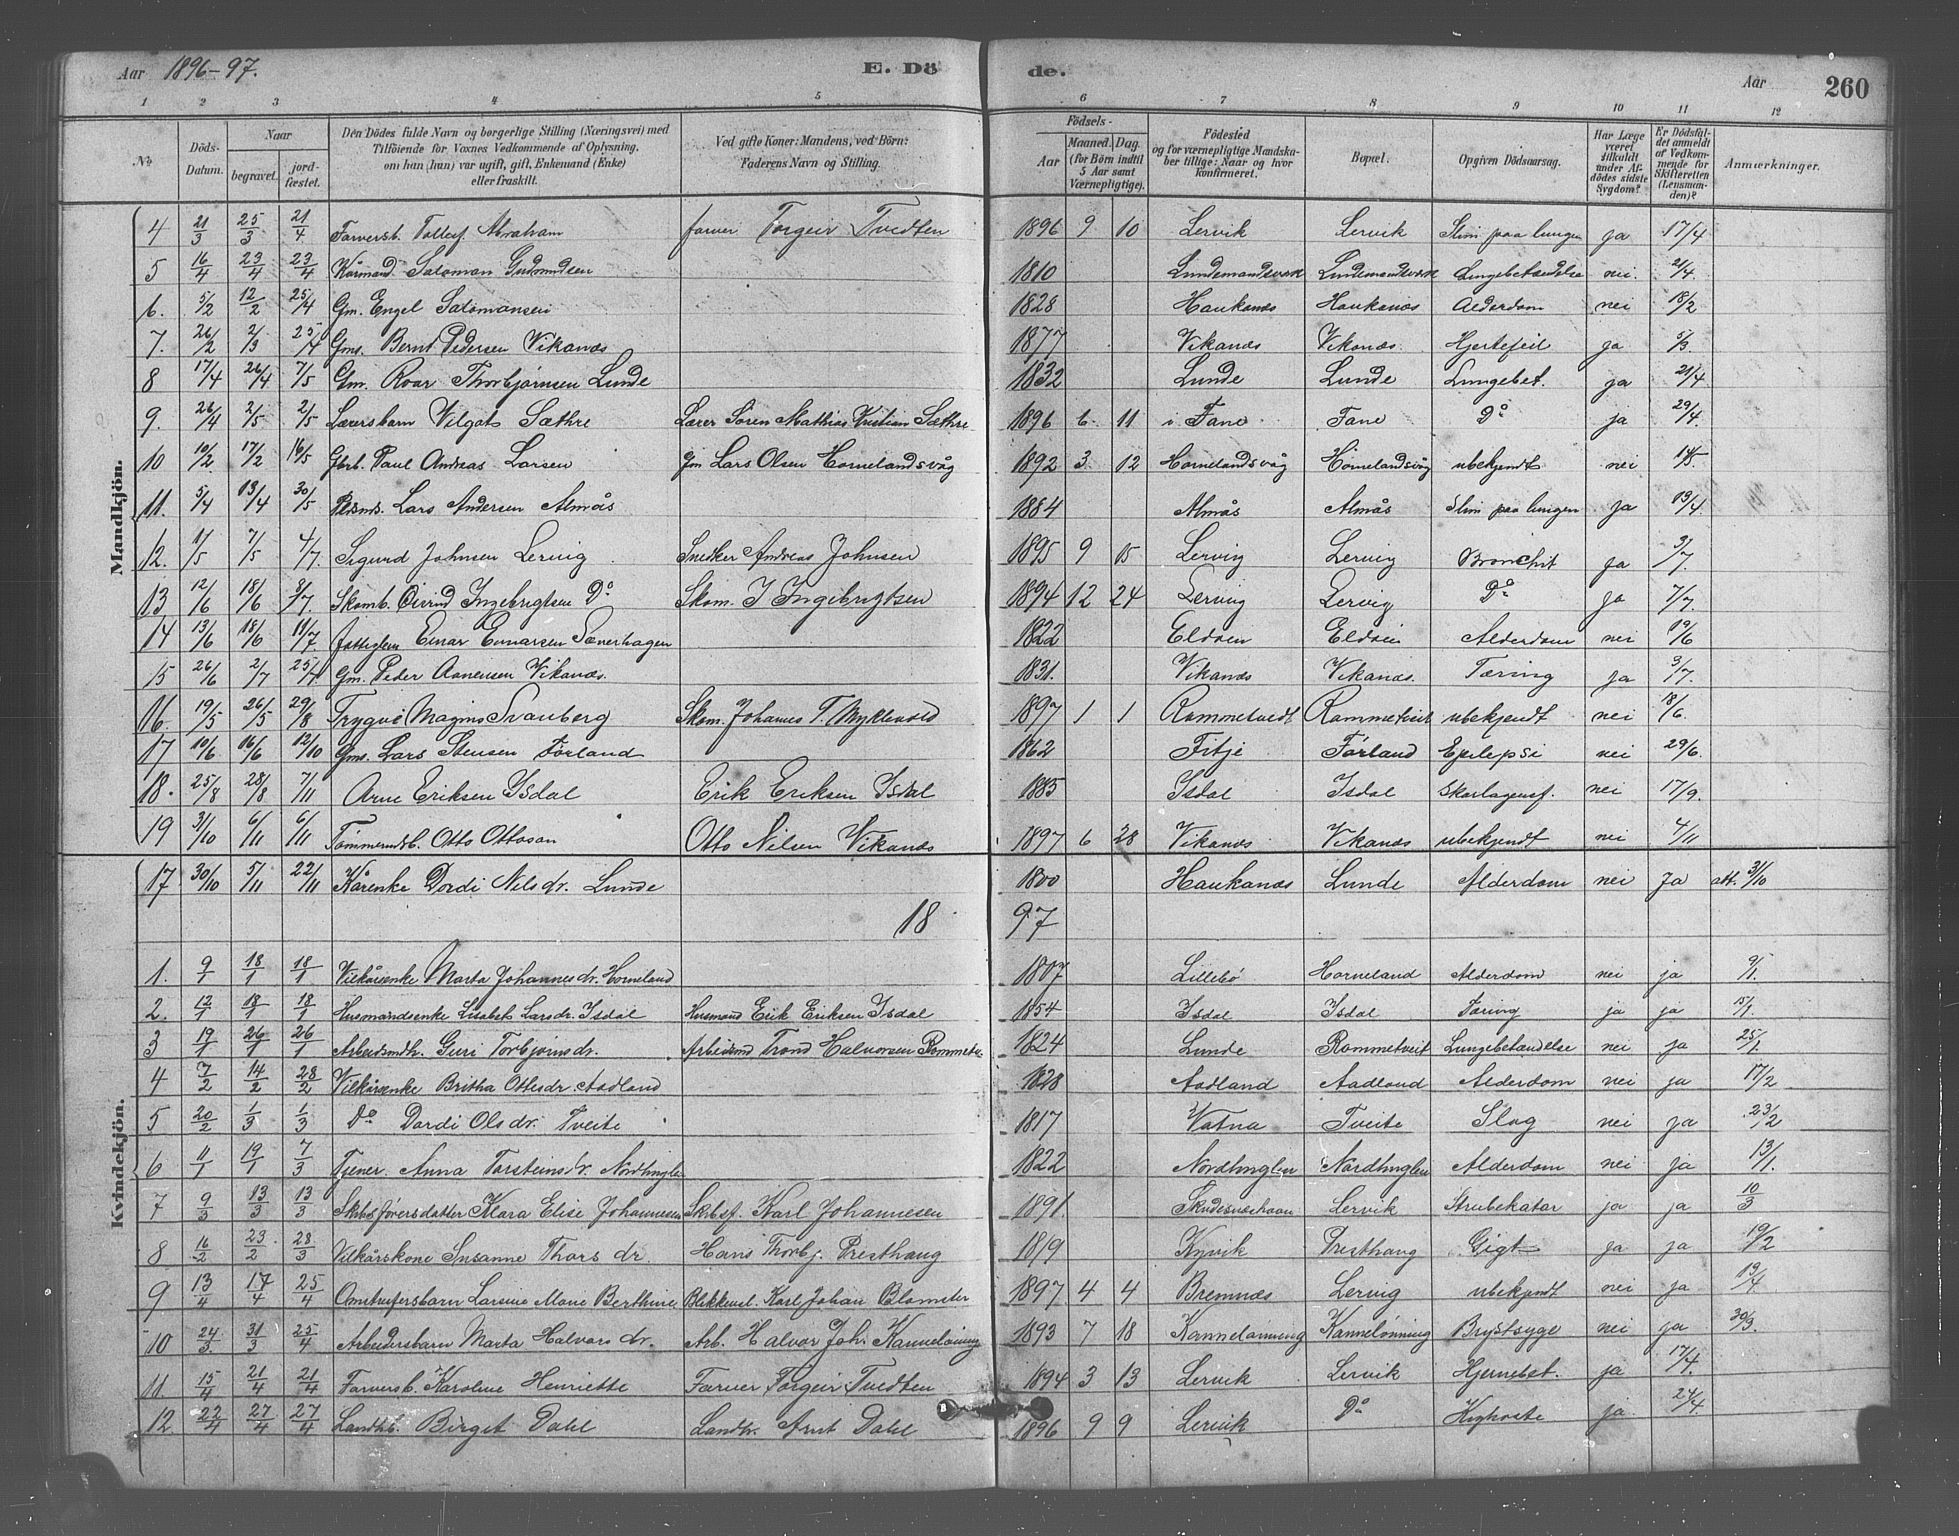 Aar 1896-97. E. Dö de. Aar 260
1 2 3 4 5 6 7 8 9 10 11 12
No Döds-Datum. Naar begravet. jord-fæstet. Den Dödes fulde Navn og borgerlige Stilling (Næringsvei) med Tilföiende for Voxnes Vedkommende af Oplysning, om han (hun) var ugift, gift, Enkemand (Enke) eller fraskilt. Ved gifte Koner: Mandens, ved Börn: Faderens Navn og Stilling. Födsels- Aar Maaned. Dag. (for Börn indtil 5 Aar samt Værnepligtige). Födested og for værnepligtige Mandskaber tillige: Naar og hvor konfirmeret. Bopæl. Opgiven Dödsaarsag. Har Læge været tilkaldt under Afdödes sidste Sygdom? Er Dödsfaldet anmeldt af Vedkommende for Skifteretten (Lensmanden)? Anmærkninger.
Mandkjön.
4 21/3 25/3 21/4 Farversb. Tollef Abraham farver Torgeir Tvedten 1896 9 10 Lervik Lervik Slim paa lungen ja 17/4
5 16/4 23/4 23/4 Kårmand Salomon Gudmundsen 1810 Lundemandsverk Lundemandsverk Lungebetændelse nei 21/4
6. 5/2 12/2 25/4 Gm. Engel Salomonsen 1828 Haukanæs Haukanæs Alderdom nei 18/2
7. 26/2 2/3 25/4 Gms. Bernt Pedersen Vikanæs 1877 Vikanæs Vikanæs Hjertefeil ja 5/3.
8 17/4 26/4 7/5 Gm. Roar Thorbjørnsen Lunde 1832 Lunde Lunde Lungebet. ja 21/4
9. 26/4 2/5 2/5 Lærersbarn Vilgots Sæthre Lærer Sören Mathias Kristian Sæthre 1896 6 11 i Fane Fane Do ja 29/4.
10 10/2 17/2 16/5 Gbrb. Paul Andreas Larsen Gm Lars Olsen Hornelandsvåg 1892 3 12 Hornelandsvåg Hornelandsvåg ubekjendt nei
11. 5/4 13/4 30/5 Lars Andersen Almås 1884 Almås Almås Slim paa lungen ja 19/4
12. 1/5 7/5 4/7. Sigurd Johnsen Lervig Snedker Andreas Johnsen 1895 9 15 Lervig Lervig Bronchit ja 3/7.
13 12/6 18/6 8/7. Skomb. Öivind Ingebrigtsen Do Skom. I Ingebrigtsen 1894 12 24 Lervig Lervig Do ja 7/7.
14 13/6 18/6 11/7. fattiglem Einar Einarsen Sæverhagen 1822 Eldøen Eldøen Alderdom nei 19/6
15 26/6 2/7 25/7. Gm. Peder Aanensen Vikanæs. 1831. Vikanæs Vikanæs. Tæring ja 3/7.
16. 19/5 26/5 29/8 Trygve Magnus Svanberg Skom. Johannes T. Myklevold 1897 1 1 Rommetvedt Rommetveit ubekjendt nei 18/6.
17 10/6 16/6 12/10 Gms. Lars Stensen Førland 1862 Fitje Førland Epilepsi nei 29/6.
18. 25/8 28/8 7/11 Arne Eriksen Isdal Erik Eriksen Isdal 1885 Isdal Isdal Skarlagensf. nei 17/9.
19 31/10 6/11 6/11 Tømmermdsb. Otto Ottosen Otto Nilsen Vikanæs 1897 6 28 Vikanæs Vikanæs ubekjendt nei 4/11
Kvindekjön.
17. 30/10 5/11 22/11 Kårenke Dordi Nels dr. Lunde 1800 Haukanæs Lunde Alderdom nei Ja att. 31/10
18 97
1. 9/1 18/1 18/1 Vilkårsenke Marta Johannes dr. Horneland 1807 Lillebø Horneland Alderdom nei ja 9/1.
2. 12/1 18/1 18/1 Husmandsenke Lisabet Lars dr. Isdal Husmand Erik Eriksen Isdal 1854 Isdal Isdal Tæring ja ja 15/1.
3 19/1 26/1 26/1 Arbeidsmdk. Guri Torbjørns dr. Arbeidsmd Trond Halvorsen Rommetv. 1824 Lunde Rommetveit Lungebetændelse nei ja 25/1.
4 7/2 14/2 28/2 Vilkårsenke Britha Ottes dr. Aadland 1828 Aadland Aadland Alderdom nei ja 17/2
5 20/2 1/3 1/3 Do Dordi Ols dr. Tveite 1817 Vatna Tveite Slag nei ja 23/2
6 11/1 19/1 7/3 Tjener. Anna Torsteins dr. Nordhuglen 1822 Nordhuglen Nordhuglen Alderdom nei ja 13/1.
7 9/3 13/3 13/3 Skibsførersdatter Klara Elise Johannesen Skibsf. Karl Johannesen 1891. Skudesneshavn Lervik Strubekatar ja ja 10/3
8 16/2 23/2 28/3 Vilkårskone Susanne Thors dr. Hans Thorbj. Presthaug 1819 Kyvik Presthaug Gigt ja ja 19/2
9 13/4 17/4 25/4 Larsine Marie Berthine Blikkensl. Karl Johan Blomster 1897 4 4 Bremnæs Lervig ubekjendt nei ja 19/4.
10 24/3. 31/3 25/4 Arbeidersbarn Marta Halvors dr. Arb. Halvor Joh. Kannelønning 1893 7 18 Kannelønning Kannelønning Brystsyge nei ja 30/3.
11. 15/4 21/4 21/4 Farversb. Karoline Henriette Farver Torgeir Tvedten 1894 3 13 Lervik Lervik Hjernebet. ja 17/4.
12. 22/4 27/4 27/4 Landhb. Birgit Dahl Landh. Arnt Dahl 1896 9 9 Lervik Do Kighoste ja 24/4.